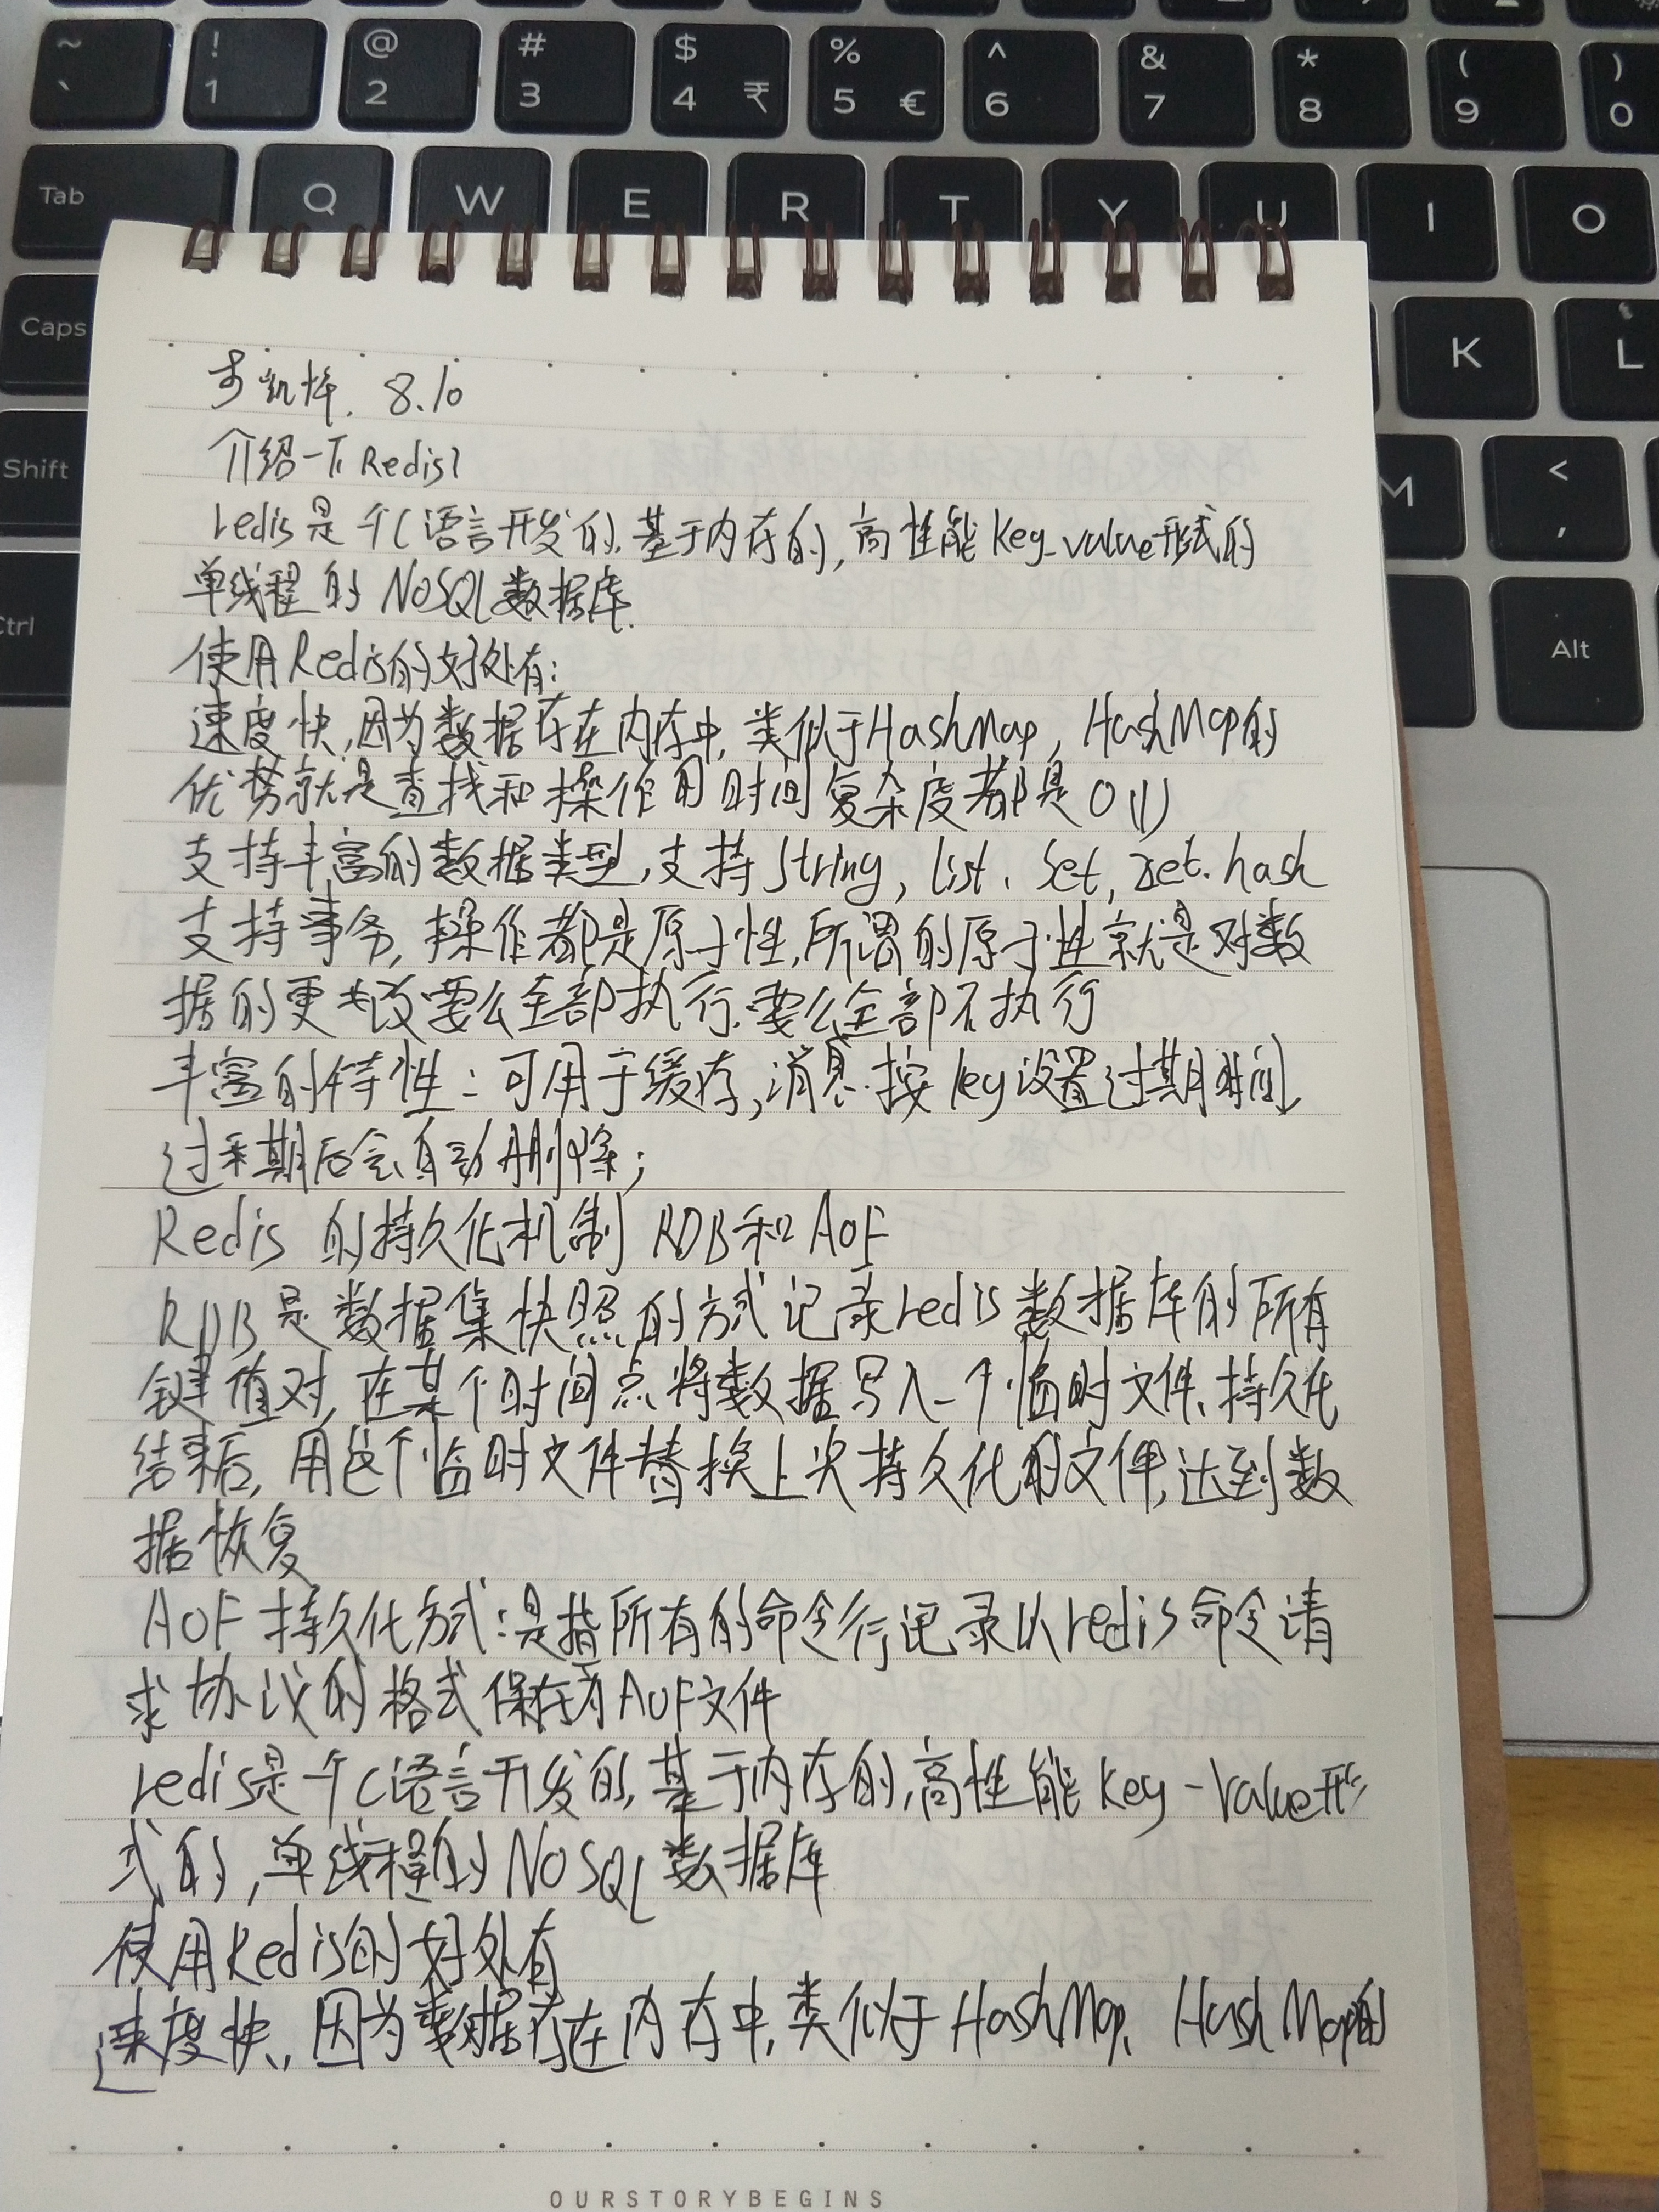 ~ ` ! 1 @ 2 # 3 $ 4 ₹ % 5 € ^ 6 & 7 * 8 ( 9 ) 0
Tab Q W E R T Y U I O
Caps K L
Shift M < ,
Ctrl Alt
8.10
介绍一下Redis?
redis是个C语言开发的,基于内存的,高性能key-value形式的
单线程的NoSQL数据库.
使用Redis的好处有:
速度快,因为数据存在内存中,类似于HashMap, HashMap的
优势就是查找和操作的时间复杂度都是O(1)
支持丰富的数据类型,支持string, list, set, zset, hash
支持事务,操作都是原子性,所谓的原子性就是对数
据的更改要么全部执行,要么全部不执行
丰富的特性:可用于缓存,消息.按key设置过期时间,
过期后会自动删除;
Redis 的持久化机制 RDB和AOF
RDB是数据集快照的方式记录redis数据库的所有
键值对,在某个时间点将数据写入一个临时文件、持久化
结束后,用这个临时文件替换上次持久化的文件,达到数
据恢复
AOF持久化方式:是指所有的命令行记录以redis命令请
求协议的格式保存为AOF文件
redis是个C语言开发的,基于内存的,高性能key-value形
式的,单线程的NoSQL数据库
使用Redis的好处有
速度快,因为数据存在内存中,类似于HashMap, HashMap的
OURSTORYBEGINS